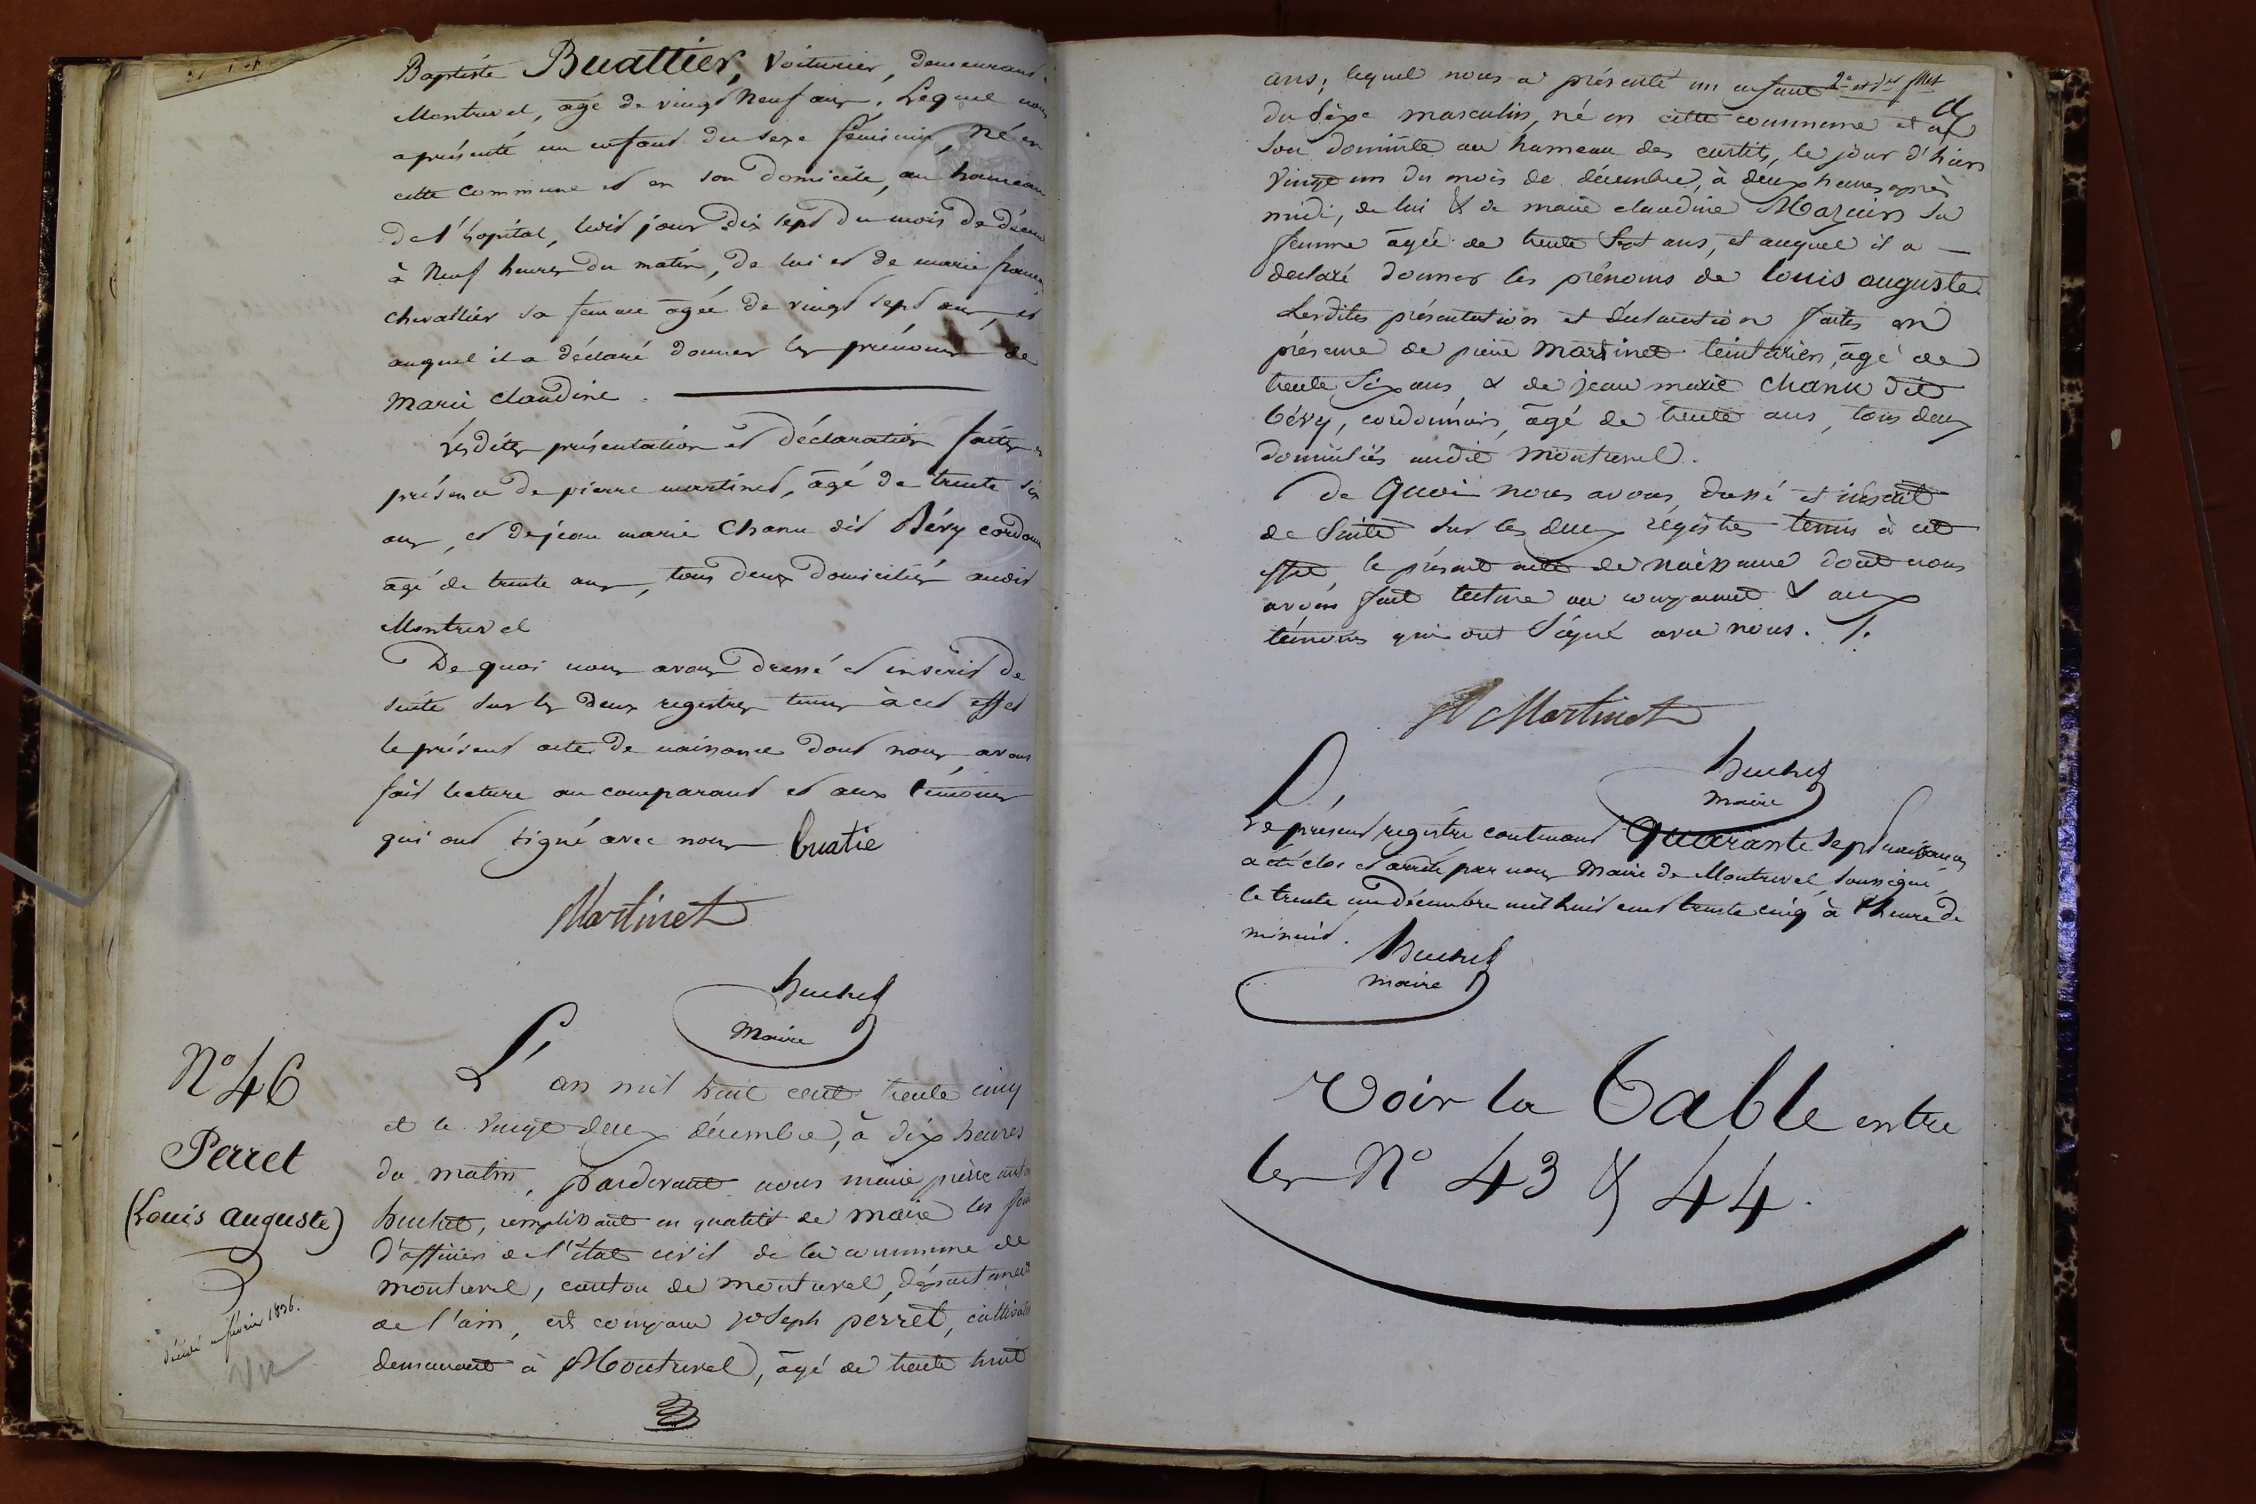 Baptiste Buattier, Voiturier, demeurant
Montrevel, agé de vingt Neuf ans, Lequel nous
a présenté un enfant du sexe féminin, Né en
cette commune et en son domicile, au hameau
de l'hopital, ledit jour Dix sept du mois de Décem
à Neuf heures du matin, de lui et de marie
chevallier sa femme agée de vingt sept ans, et
auquel il a déclaré donner les prénoms de
Marie Claudine.
Lesdites présentation et déclaration faites en
présence de pierre martinet, agé de trente six
ans, et de jean marie Chanu dit Bévy cordonn
agé de trente ans, tous deux domiciliés audit
Montrevel
De quoi nous avons dressé et inscrit de
suite sur les deux registres tenus à cet effet
le présent acte de naissance dont nous avons
fait lecture au comparant et aux témoins
qui ont signé avec nous buatié
Martinet
huchet
Maire
N° 46
Perret
(Louis auguste)
décédé en février 1836.
Vu
L'an mil huit cent trente cinq
et le vingt deux décembre, à dix heures
du matin, pardevant nous marie pierre
huchet, remplissant en qualité de maire les fon
d'officier de l'état civil de la commune de
montrevel, canton de montrevel, département
de l'ain, est comparu joseph perret, cultivat
demeurant à Montrevel, âgé de trente huit
ans; lequel nous a présenté un enfant 2e et der fllet
du sèxe masculin, né en cette commune et a
son domicile au hameau des curtils, le jour d'hier
vingt un du mois de décembre, à deux heures après
midi, de lui & de marie claudine Mazuir sa
femme agée de trente sept ans, et auquel il a
declaré donner les prénoms de louis auguste
Lesdites présentation et déclaration faites en
présence de pierre Martinet teinturier, âgé de
trente six ans & de jean marie chanu dit
bévy, cordonnier, âgé de trente ans, tous deux
domiciliés audit montrevel.
De Quoi nous avons dressé et inscrit
de suite sur les deux régistres tenus à cet
effet, le présent acte de naissance dont nous
avons fait lecture au comparant & aux
témoins qui ont signé avec nous. /.
P Martinet
huchet
maire
Le présent registre contenant Quarante sept naissances
a été clos et arrêté par nous Maire de Montrevel, soussigné,
le trente un Décembre mil huit cent trente cinq à l'heure de
minuit.
huchet
maire
Voir la Table entre
les N° 43 & 44.